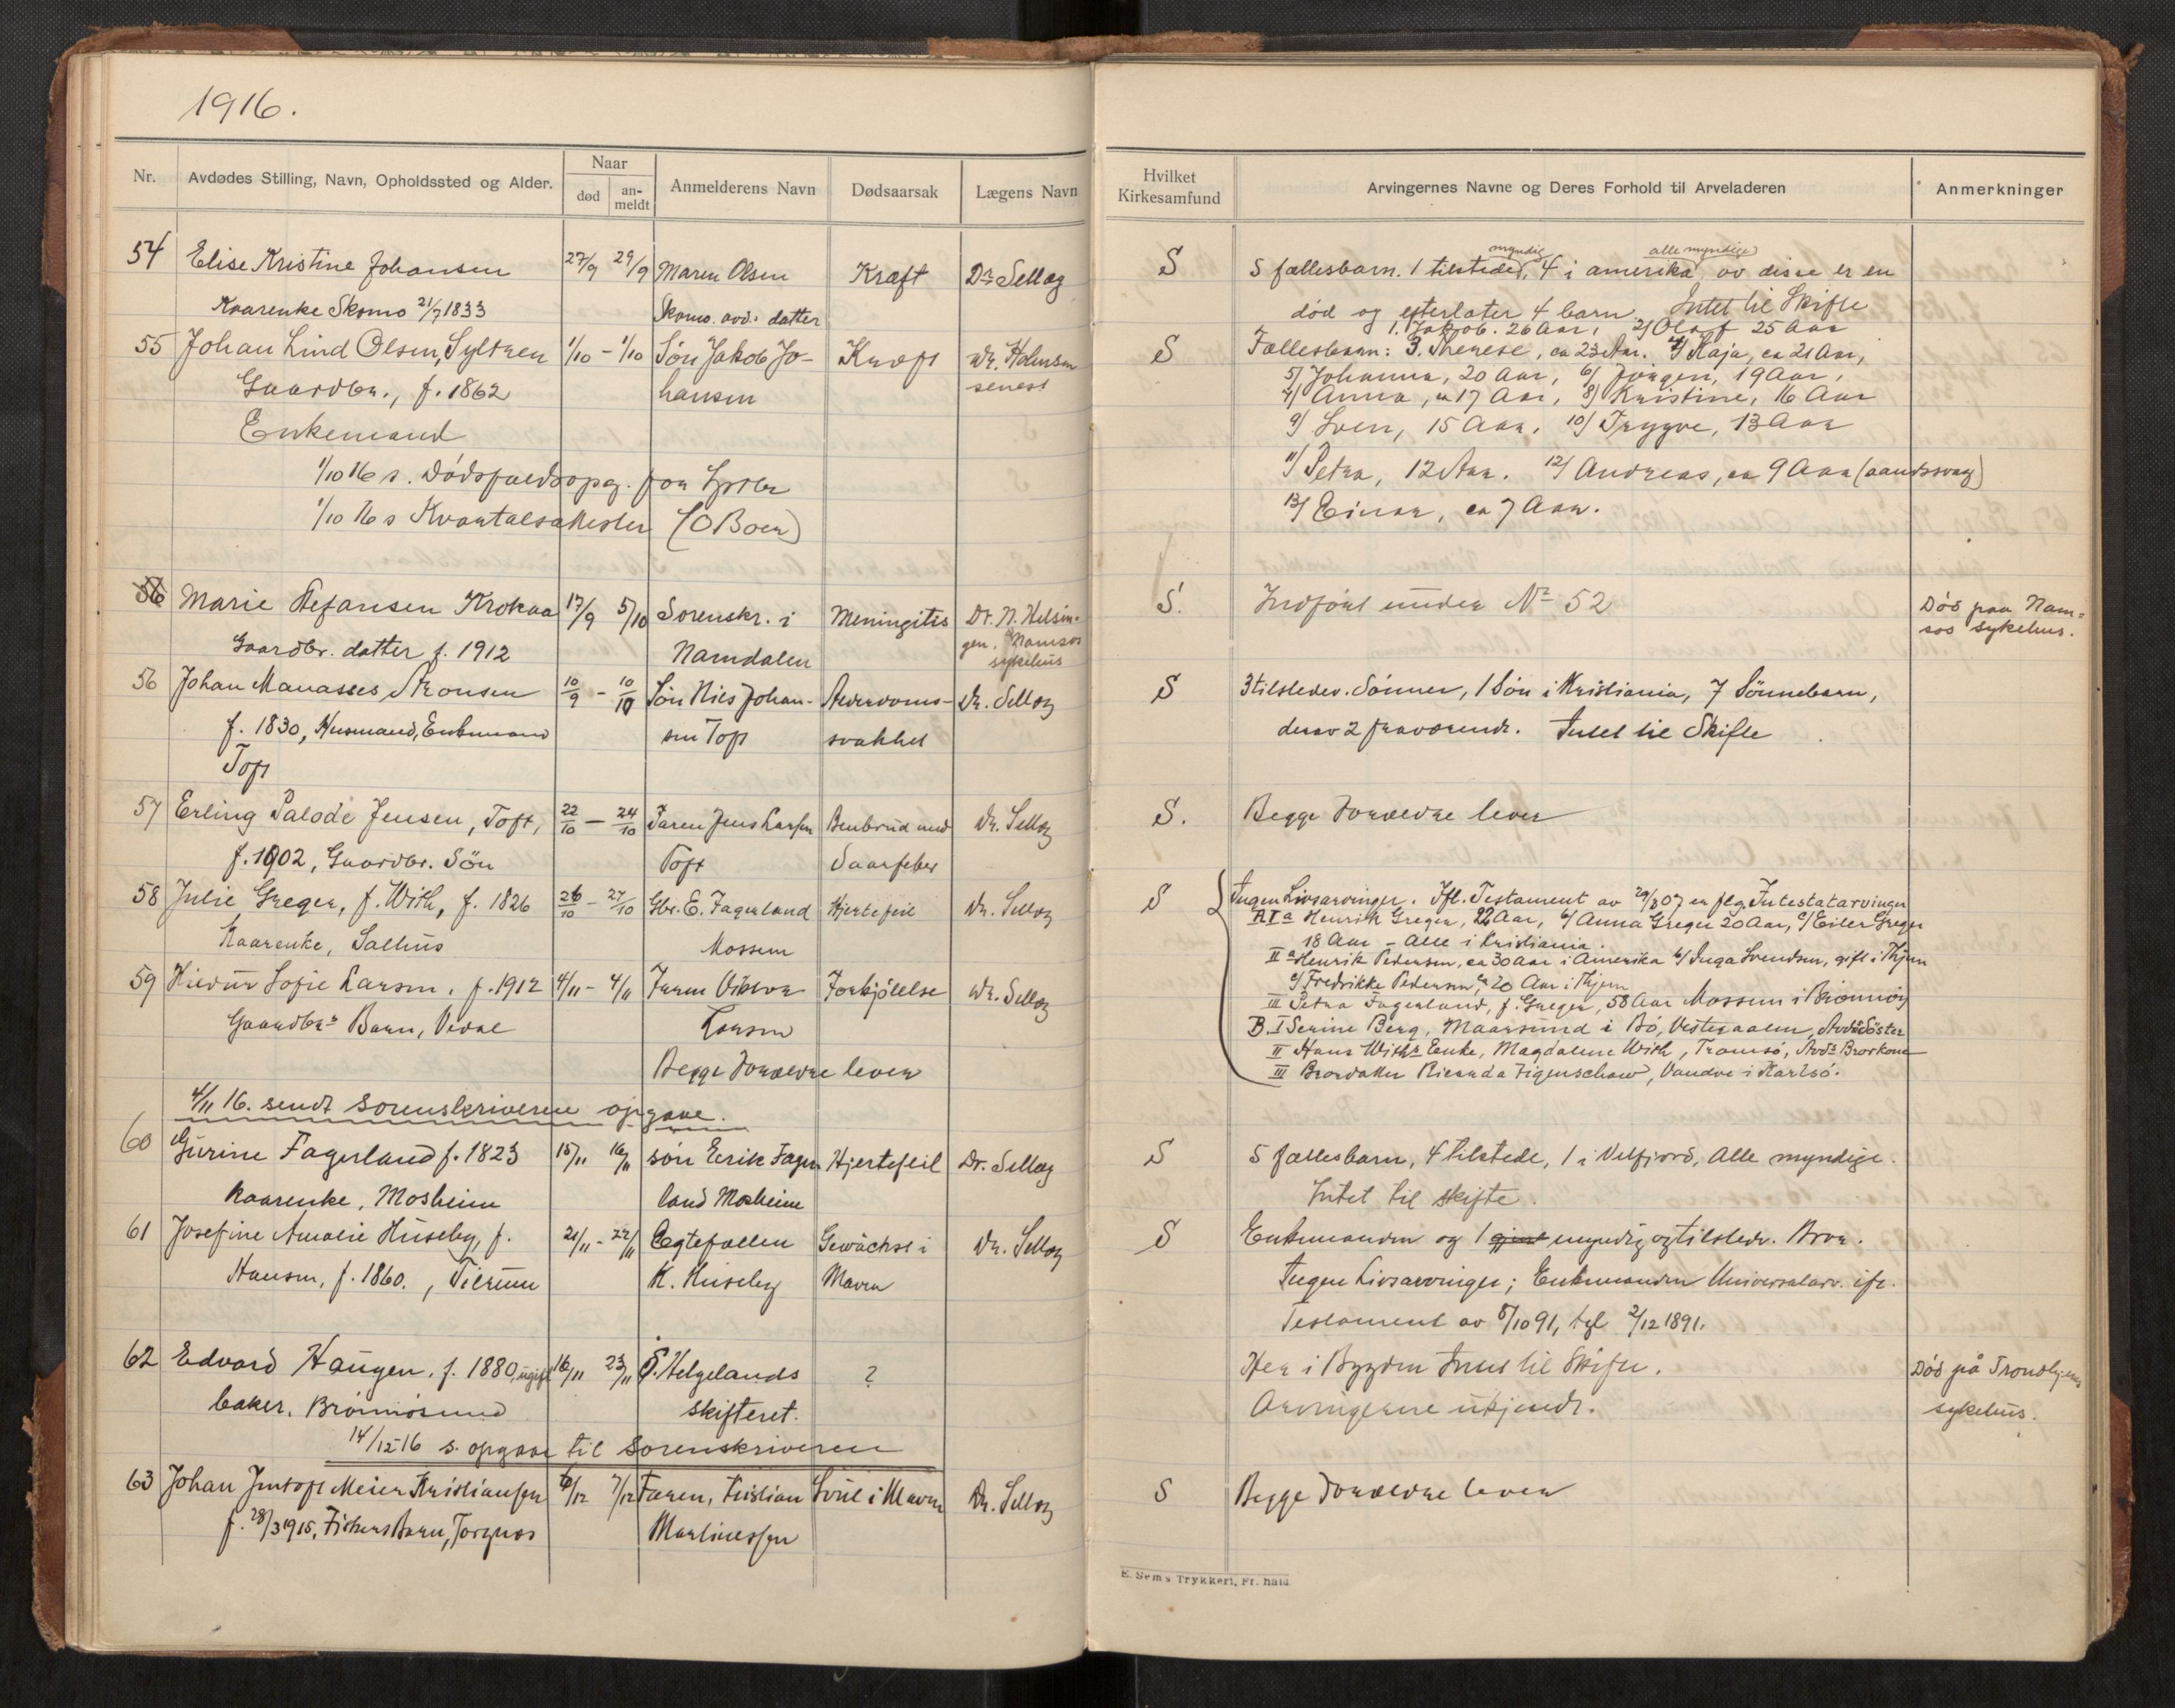 1916.
Nr.
Avdødes Stilling, Navn, Opholdssted og Alder.
Naar
død
an-
meldt
Anmelderens Navn
Dødsaarsak
Lægens Navn
Hvilket
Kirkesamfund
Arvingernes Navne og Deres Forhold til Arveladeren
Anmerkninger
54 Elise Kristine Johansen 27/9 29/9 Maren Olsen Kræft Dr Sellæg S
Kaarenke Skomo 21/7 1833 Skomo. avd. datter
myndig alle myndige
5 fællesbarn. 1 tilstede, 4 i amerika av disse er en
død og efterlater 4 barn. Intet til Skifte
55 Johan Lind Olsen, Syltren 1/10 - 1/10 Søn Jakob Jo- Kræft Dr. Holmsen S
Gaardbr., f. 1862 hansen senest
Enkemand
1/10 16 s. Dødsfaldsopg. fra
1/10 16 s Kvartalsattester (O Boen)
1. Jakob. 26 Aar, 2/ Olaf 25 Aar
Fællesbarn: 3. Therese, ca 23 Aar. 4/ Kaja, ca 21 Aar,
5/ Johanna, 20 Aar, 6/ Jørgen, 19 Aar,
7/ Anna, ca 17 Aar, 8/ Kristine, 16 Aar
9/ Sven, 15 Aar, 10/ Trygve, 13 Aar
11/ Petra, 12 Aar. 12/ Andreas, ca 9 Aar (aandssvag)
13/ Einar, ca 7 Aar.
56 Marie Stefansen Krokaa 17/9 5/10 Sorenskr. i Meningitis Dr. N. Helsin- S. Indført under No 52 Død paa Nam-
Gaardbr. datter f. 1912 Namdalen gen, Namsos sos sykehus.
sykehus
56 Johan Manasses Aronsen 10/9 - 10/10 Søn Nils Johan- Alderdoms- Dr. Sellæg S 3 tilstedev. Sønner, 1 Søn i Kristiania, 7 Sønnebarn,
f. 1830, Husmand, Enkemand sen Toft svakhet derav 2 fraværende. Intet til Skifte
Toft
57 Erling Palode Jensen, Toft, 22/10 - 24/10 Faren Jens Larsen Benbrud med Dr. Sellæg S. Begge Forældre lever
f. 1902, Gaardbr. Søn Toft Saarfeber
58 Julie Greger, f. With, f. 1826 26/10 - 27/10 Gbr. E. Fagerland Hjertefeil Dr. Sellæg S
Kaarenke, Salhus Mossem
Ingen Livsarvinger. Ifl. Testament av 29/8 07 er flg. Intestatarvinger
A I a Henrik Greger, 22 Aar, b/ Anna Greger 20 Aar, c/ Eiler Greger
18 Aar - Alle i Kristiania.
II a Henrik Pedersen, ca 30 Aar i Amerika b/ Inga Svendsen, gift i Thjem
c/ Fredrikke Pedersen, ca 20 Aar i Thjem
III Petra Fagerland, f. Greger, 58 Aar Mossem i Brønnøy
B. I Serine Berg, Maarsund i Bø, Vesteraalen, Avdødes Søster
II Hans Withs Enke, Magdalene With, Tromsø, Avds Brorkone
III Brordatter Ricarda Figenschaw, Vandve i Karlsø.
59 Sofie Larsen, f. 1912 4/11 - 4/11 Faren Viktor Forkjølelse Dr. Sellæg
Gaardbrs Barn, Larsen
Begge Forældre lever
4/11 16. sendt sorenskriveren opgave.
60 Gurine Fagerland f. 1823 15/11 16/11 søn Erik Fager Hjertefeil Dr. Sellæg S 5 fællesbarn, 4 tilstede, 1 i Velfjord, Alle myndige.
Kaarenke, Mosheim land Mosheim Intet til skifte.
61 Josefine Amalie Huseby, f. 21/11 - 22/11 Egtefællen Gewächse i Dr. Sellæg S Enkemanden og 1 myndig og tilstedev. Bror.
Hansen, f. 1860., Tilrum K. Huseby Maven Ingen Livsarvinger; Enkemanden Universalarv. ifl.
Testament av 5/10 91, tgl 2/12 1891.
62 Edvard Haugen. f. 1880, ugift 16/11 23/11 S. Helgelands ? Her i Bygden Intet til Skifte. Død på Trondhjems
baker. Brønnøsund skifteret. Arvingerne ukjendt. sykehus.
14/12-16 s. opgave til sorenskriveren
63 Johan Meier Kristiansen 6/12 7/12 Faren, Kristian i Maven Dr. Sellæg S Begge Forældre lever
f. 28/3 1915, Fiskers Barn, Torgnes Martinussen
E. Sem's Trykkeri, Fr. hald